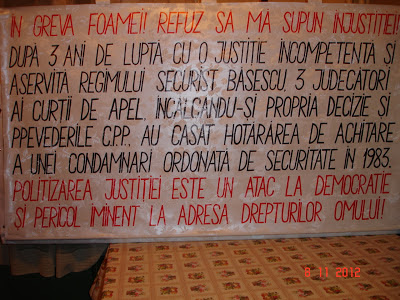 IN GREVA FOAMEI! REFUZ SA MA SUPUN INJUSTITIEI!
DUPA 3 ANI DE LUPTĂ CU O JUSTITIE INCOMPETENTĂ SI
ASERVITA REGIMULUI SECURIST BASESCU 3 JUDECĂTORI
AI CURTII DE APEL, INCĂLCANDU-SI PROPRIA DECIZIE SI
PPEVEDERILE C.P.P., AU CASAT HOTARAREA DE ACHITARE
A UNEI CONDAMNARI ORDONATĂ DE SECURITATE IN 1983.
POLITIZAREA JUSTITIEI ESTE UN ATAC LA DEMOCRATIE
SI PERICOL IMINENT LA ADRESA DREPTURILOR OMULUI!
8 11 2012